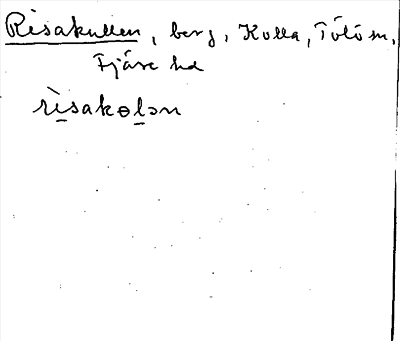 Risakullen, berg, Kolla, Tölö sn,
Fjäre hd
rìsakɵlən